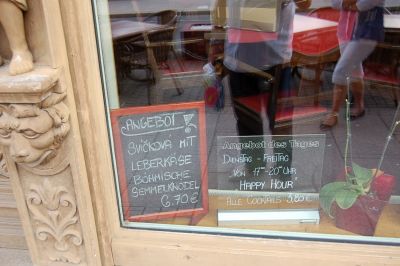 ANGEBOT!
SVÍČKOVÁ MIT
LEBERKÄSE
BÖHMISCHE
SEMMELKNÖDEL
6.70 €
Angebot des Tages
DIENSTAG - FREITAG
VON 17-20 UHR
HAPPY HOUR
ALLE COCKTAILS 5,80 €